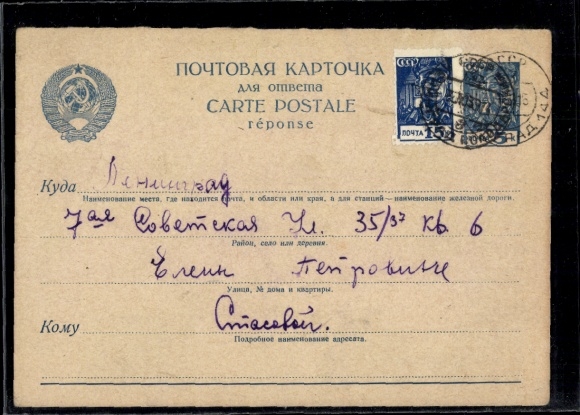 ПОЧТОВАЯ КАРТОЧКА
для ответа
CARTE POSTALE
réponse
СССР
ПОЧТА 15
Куда Ленинград
Наименование места, где находится почта, и области или края, а для станций—наименование железной дороги.
7ая Советская Ул. 35/37 кв. 6
Район, село или деревня.
Елене Петровиче
Улица, № дома и квартиры.
Кому Стасовой.
Подробное наименование адресата.